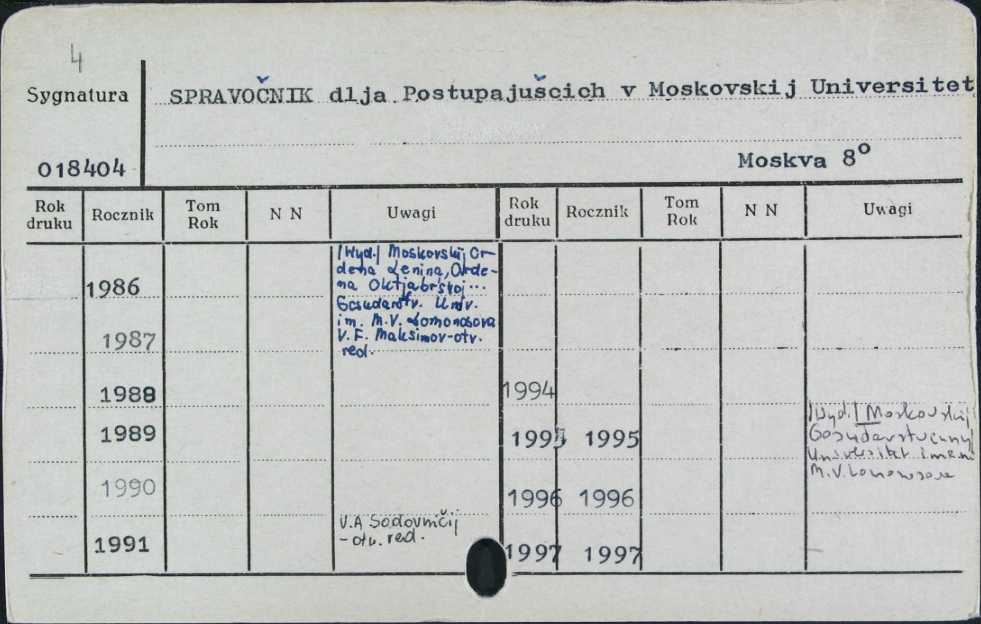 4
Sygnatura
SPRAVOČNIK dlja Postupajuščich v Moskovskij Universitet
018404
Moskva 8°
Rok druku Rocznik Tom Rok N N Uwagi Rok druku Rocznik Tom Rok N N Uwagi
1986
/Wyd./ Moskovskij Or-
dena Lenina, Orde-
na Oktjabŕskoj...
Gosudarstv. Univ.
im. M.V. Lomonosova
V.F. Maksimov-otv.
red.
1987
1988
1989
1990
1991
V.A Sadovničij
-otv. red.
1994
1995 1995
/Wyd./ Moskovskij
Gosudarstvennyj
Universitet imeni
M.V. Lomonosova
1996 1996
1997 1997